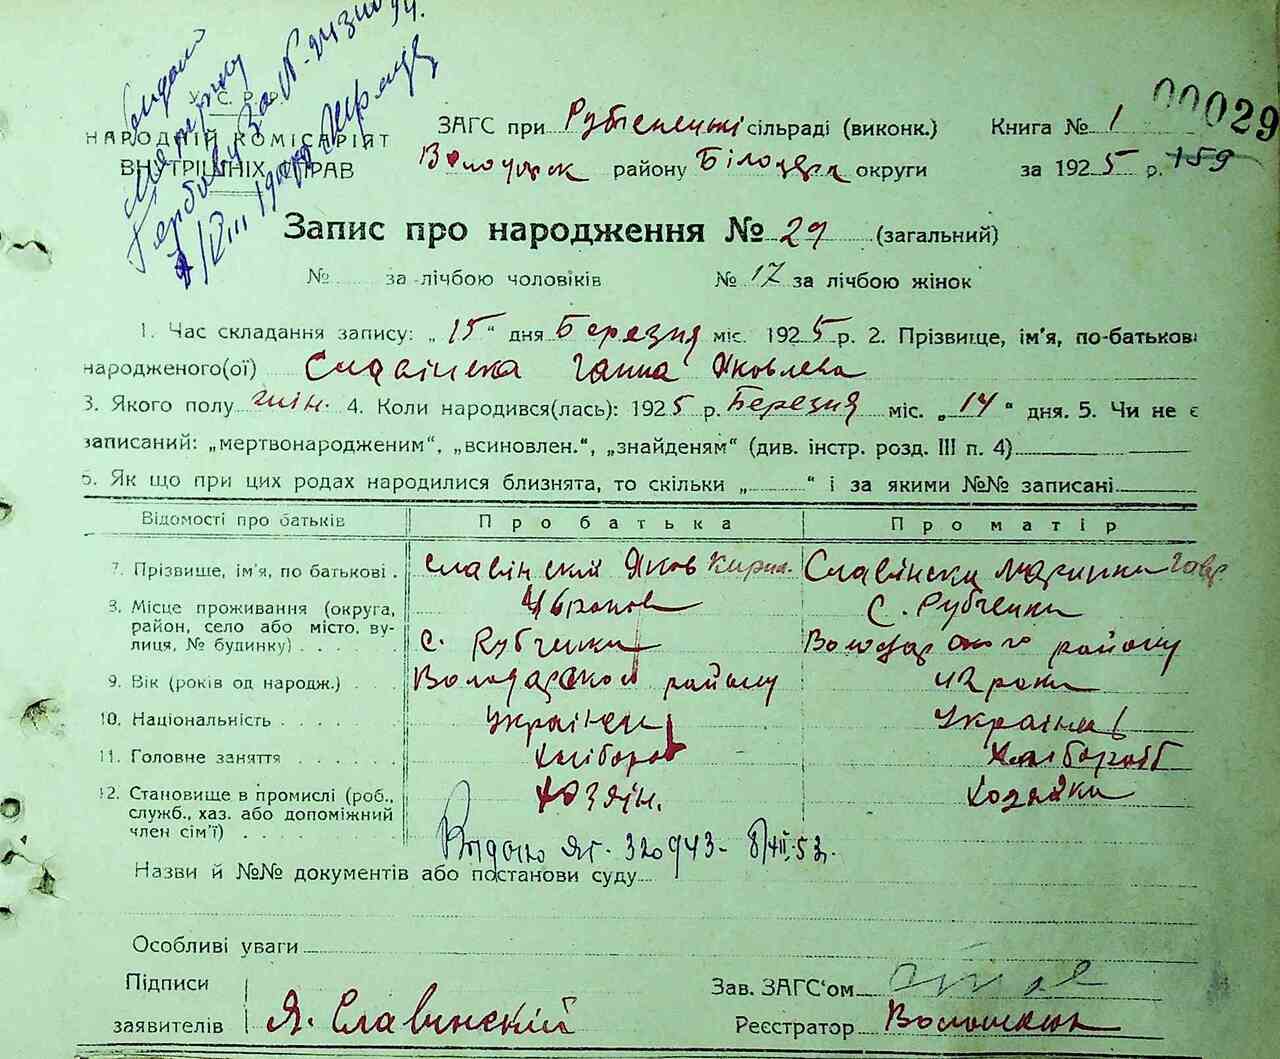 У.С.Р.Р.
НАРОДНІЙ КОМІСАРІЯТ
ВНУТРІШНІХ СПРАВ
00029
ЗАГС при Рубченській сільраді (виконк.) Книга № 1
району округи за 1925 р. 159
Запис про народження № 29 (загальний)
№ за лічбою чоловіків № 17 за лічбою жінок
1. Час складання запису: „ 15 “ дня Березня міс. 1925 р. 2. Прізвище, ім'я, по-батькові
народженого(ої) Славінска Ганна Яковлева
3. Якого полу жін. 4. Коли народився(лась): 1925 р. Березня міс. „ 14 “ дня. 5. Чи не є
записаний: „мертвонародженим“, „всиновлен.“, „знайденям“ (див. інстр. розд. III п. 4)
6. Як що при цих родах народилися близнята, то скільки „ “ і за якими №№ записані
Відомості про батьків Про батька Про матір
7. Прізвище, ім'я, по батькові . Славінский Яков Кирил. Славінска Маринка Гавр
8. Місце проживання (округа, район, село або місто, вулиця, № будинку) 46 роков с. Рубченки
с. Рубченки Володарского району
9. Вік (років од народж.) Володарского району 42 роки
10. Національність Українец Українка
11. Головне заняття Хлібороб Хлібороб
12. Становище в промислі (роб., служб., хаз. або допоміжний член сім'ї) Хозяін. Хозяйка
Видано ЯГ. 320943 - 8/XII.53
Назви й №№ документів або постанови суду
Особливі уваги
Підписи
заявителів Я. Славинский
Зав. ЗАГС'ом
Реєстратор